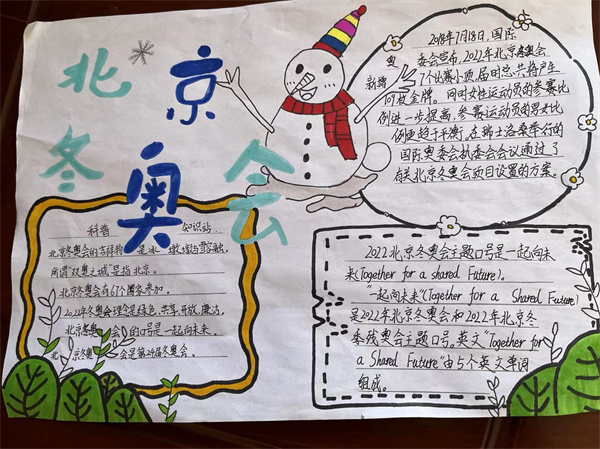 北京
冬奥会
2018年7月18日,国际
奥
委会宣布,2022年北京冬奥会
新增
7个比赛小项,届时总共将产生
109枚金牌。同时女性运动员的参赛比
例进一步提高,参赛运动员的男女比
例更趋于平衡。在瑞士洛桑举行的
国际奥委会执委会会议通过了
有关北京冬奥会项目设置的方案。
科普 知识站
北京冬奥会的吉祥物 是冰 墩墩与雪容融。
所谓"双奥之城"是指北京。
北京冬奥会有67个国家参加。
2022年冬奥会理念是绿色、共享、开放、廉洁。
北京冬奥 会的口号是一起向未来。
北 京冬奥 会是第24届冬奥会。
2022北京冬奥会主题口号是一起向未
来(Together for a shared Future)。
"一起向未来"(Together for a Shared Future)
是2022年北京冬奥会和2022年北京冬
季残奥会主题口号。英文"Together for
a Shared Future"由5个英文单词
组成。